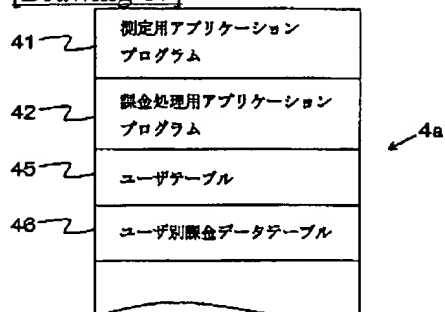 41
測定用アプリケーション
プログラム
42
課金処理用アプリケーション
プログラム
4a
45
ユーザテーブル
46
ユーザ別課金データテーブル